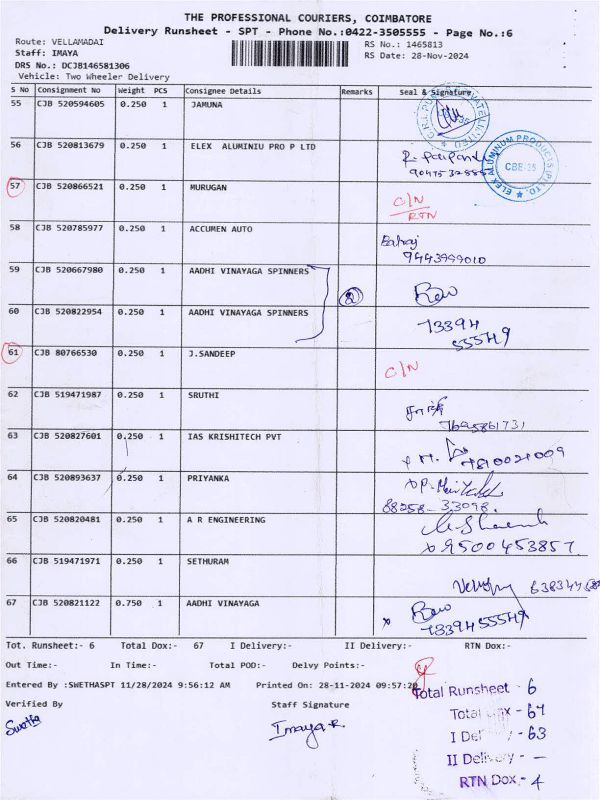 THE PROFESSIONAL COURIERS, COIMBATORE
Delivery Runsheet - SPT - Phone No.:0422-3505555 - Page No.:6
Route: VELLAMADAI
Staff: IMAYA
RS No.: 1465813
DRS No.: DCJB146581306
RS Date: 28-Nov-2024
Vehicle: Two Wheeler Delivery
S No Consignment No Weight PCS Consignee Details Remarks Seal & Signature
55 CJB 520594605 0.250 1 JAMUNA
56 CJB 520813679 0.250 1 ELEX ALUMINIU PRO P LTD
ELEX ALUMINUM PRODUCTS (P) LTD.
CBE-35
57 CJB 520866521 0.250 1 MURUGAN C/N
RTN
58 CJB 520785977 0.250 1 ACCUMEN AUTO
9443999010
59 CJB 520667980 0.250 1 AADHI VINAYAGA SPINNERS 2
60 CJB 520822954 0.250 1 AADHI VINAYAGA SPINNERS 73394
55549
61 CJB 80766530 0.250 1 J.SANDEEP C/N
62 CJB 519471987 0.250 1 SRUTHI
7695861731
63 CJB 520827601 0.250 1 IAS KRISHITECH PVT
7810021009
64 CJB 520893637 0.250 1 PRIYANKA
88258-33098.
65 CJB 520820481 0.250 1 A R ENGINEERING
9500453857
66 CJB 519471971 0.250 1 SETHURAM
67 CJB 520821122 0.750 1 AADHI VINAYAGA
7339455549
Tot. Runsheet:- 6 Total Dox:- 67 I Delivery:- II Delivery:- RTN Dox:-
Out Time:- In Time:- Total POD:- Delvy Points:-
Entered By :SWETHASPT 11/28/2024 9:56:12 AM Printed On: 28-11-2024 09:57:20
Verified By Staff Signature
Swetha Imaya.R
Total Runsheet - 6
Total Dox - 67
I Delivery - 63
II Delivery - —
RTN Dox - 4